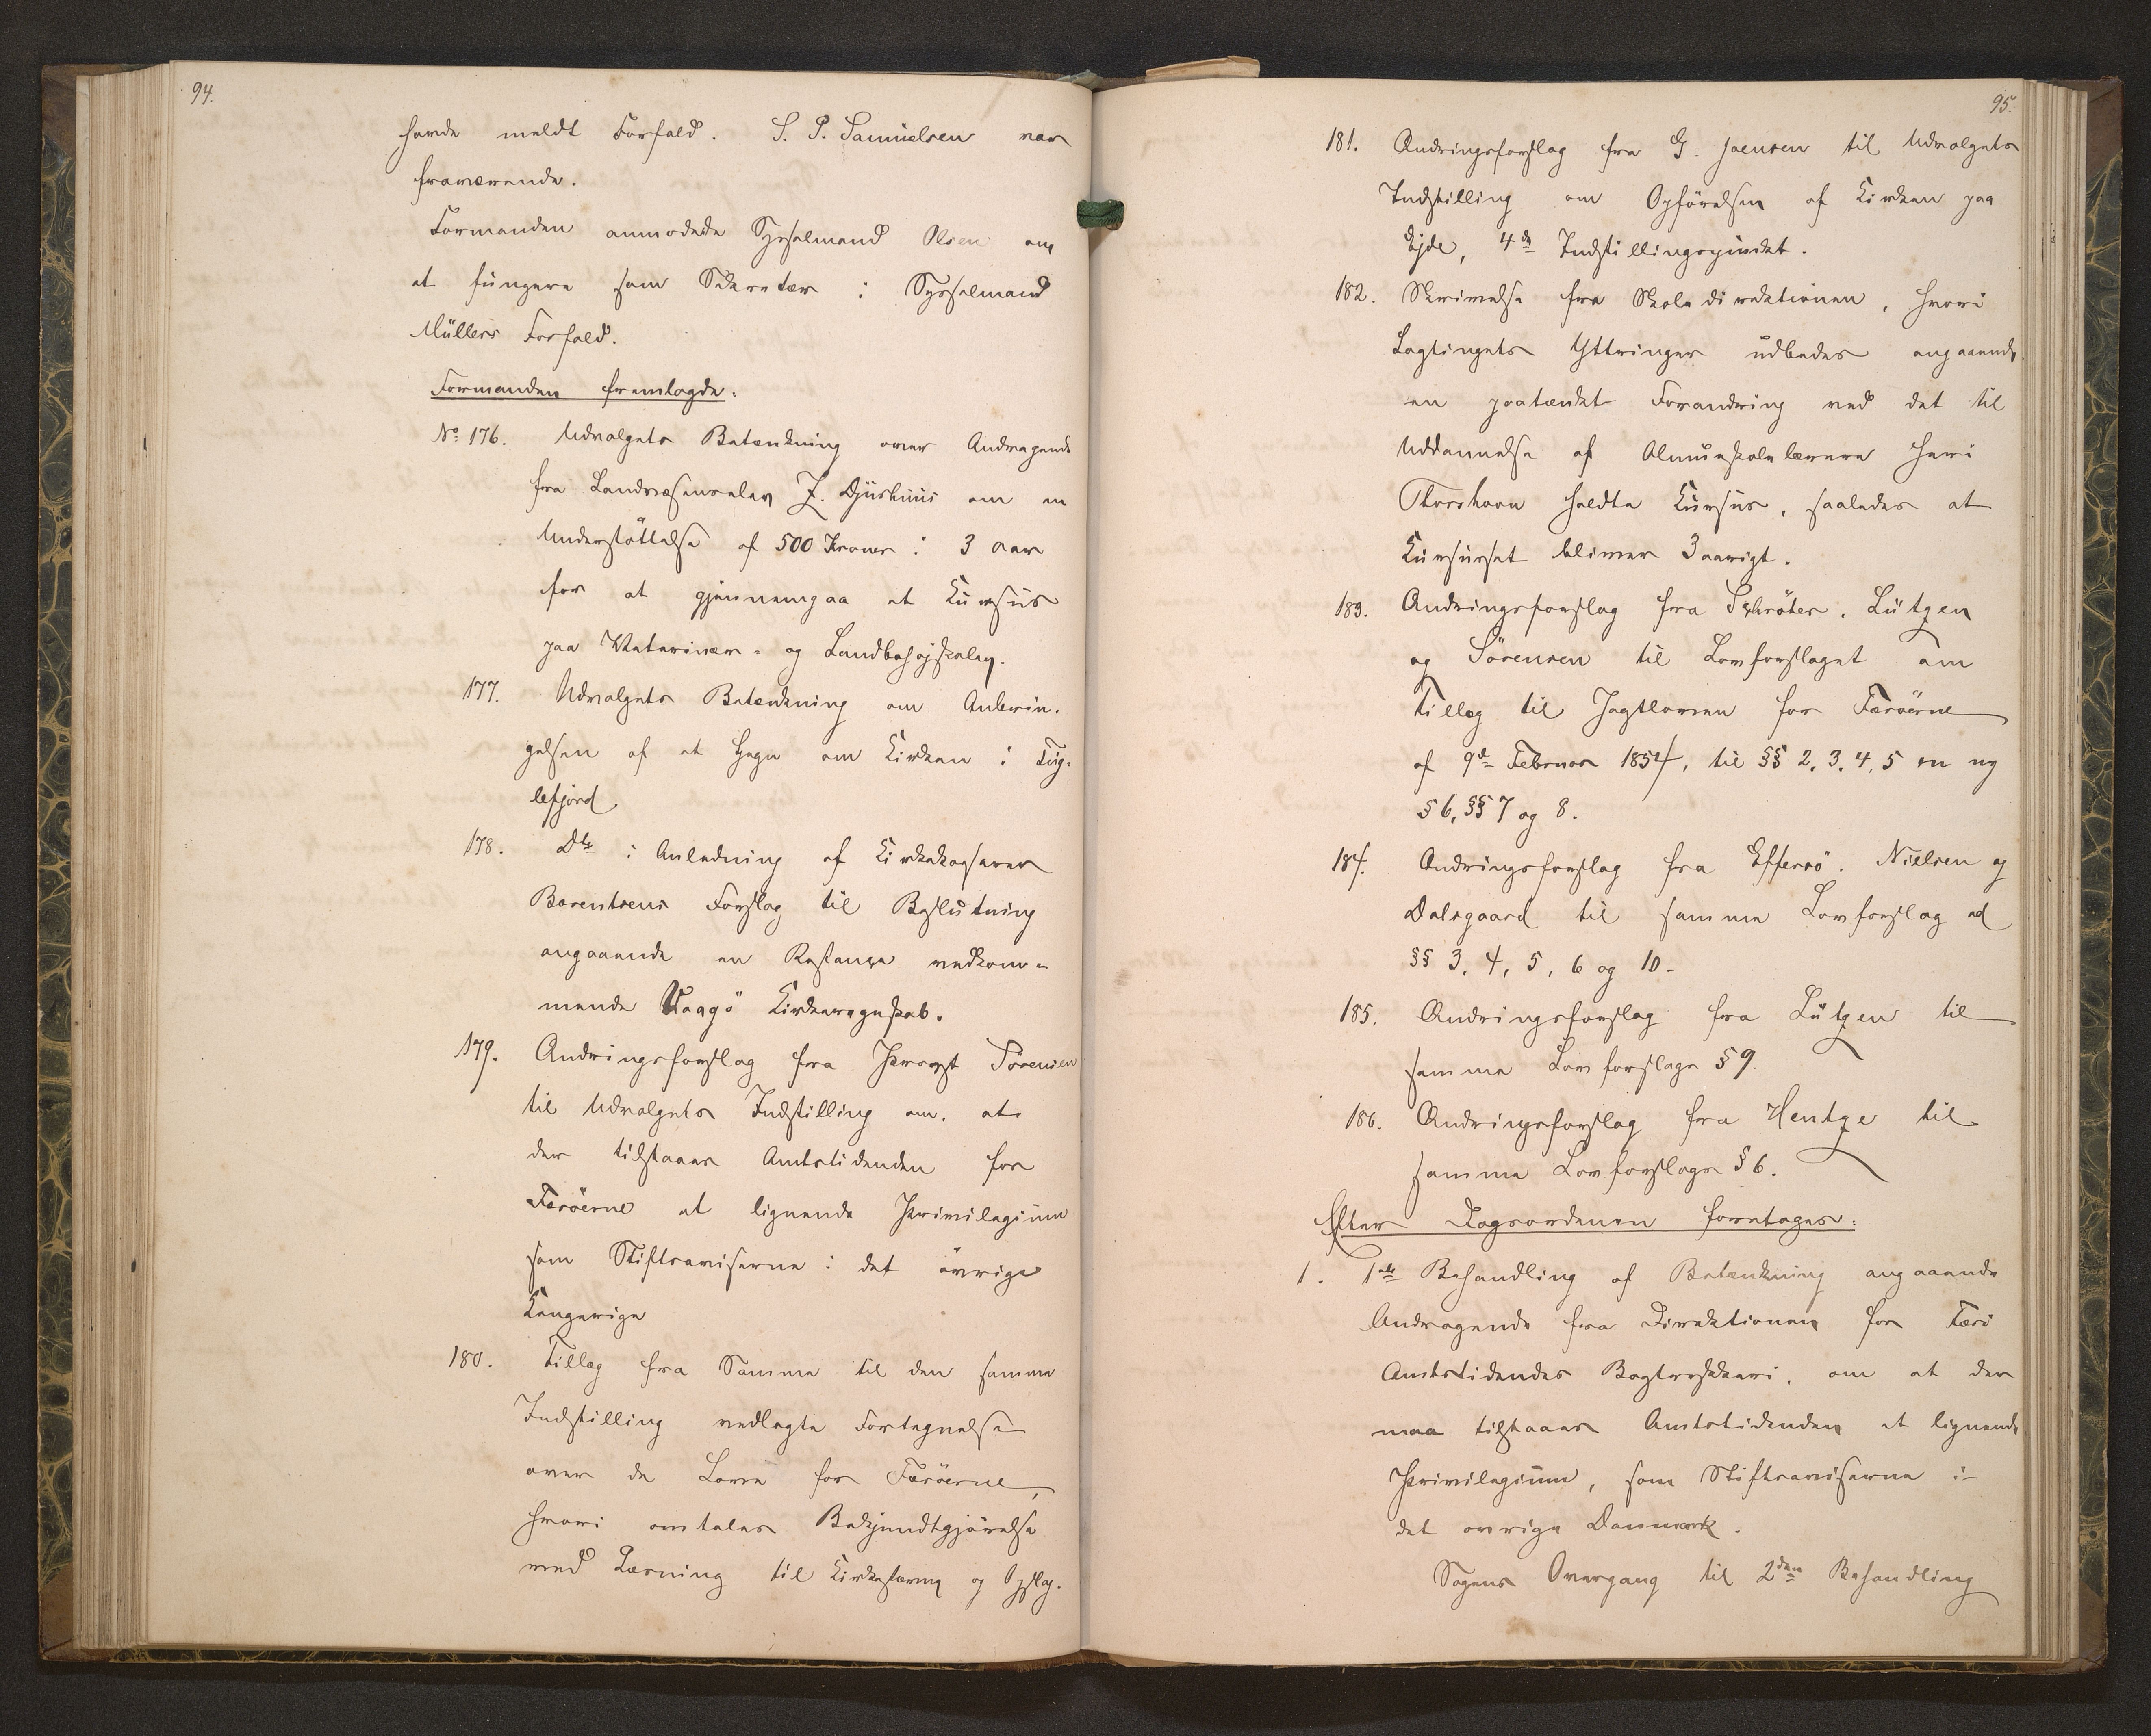 94.
havde meldt Forfald. S. P. Samuelsen var
fraværende.
Formanden anmodede Sysselmand Olsen om
at fungere som Sekretær i Sysselmand
Müllers Forfald.
Formanden fremlagde:
No 176. Udvalgets Betænkning over Andragende
fra Landvæsenselev J. Djurhuus om en
Understöttelse af 500 Kroner i 3 Aar
for at gjennemgaa et Kursus
paa Veterinær- og Landbohøjskolen.
177. Udvalgets Betænkning om Anbrin-
gelsen af et Hegn om Kirken i Fug-
lefjord
178. Do i Anledning af Kirkekasserer
Berentsens Forslag til Beslutning
angaaende en Restance vedkom-
mende Vaagö Kirkeregnskab.
179. Ændringsforslag fra Provst Sörensen
til Udvalgets Indstilling om, at
der tilstaaes Amtstidenden for
Færöerne et lignende Privilegium
som Stiftsaviserne i det övrige
Kongerige
180. Tillæg fra Samme til den samme
Indstilling vedlagte Fortegnelse
over de Love for Færöerne,
hvori omtales Bekjendtgjörelse
ved Læsning til Kirkestævne og Opslag.
95.
181. Ændringsforslag fra G. Joensen til Udvalgets
Indstilling om Opförelsen af Kirken paa
Ejde, 4de Indstillingspunkt.
182. Skrivelse fra Skoledirektionen, hvori
Lagtingets Yttringer udbedes angaaende
en paatænkt Forandring ved det til
Uddannelse af Almueskolelærere her i
Thorshavn holdte Kursus, saaledes at
Kursuset bliver 3aarigt.
183. Ændringsforslag fra Schröter, Lützen
og Sörensen til Lovforslaget om
Tillæg til Jagtloven for Færöerne
af 9de Februar 1854, til §§ 2, 3, 4, 5 en ny
§ 6, §§ 7 og 8.
184. Ændringsforslag fra Effersö, Nielsen og
Dalsgaard til samme Lovforslag ad
§§ 3, 4, 5, 6 og 10-
185. Ændringsforslag fra Lützen til
samme Lovforslags § 9.
186. Ændringsforslag fra Hentze til
samme Lovforslags § 6.
Efter Dagsordenen foretoges:
1. 1ste Behandling af Betænkning angaaende
Andragende fra Direktionen for Færö
Amtstidendes Bogtrykkeri, om at der
maa tilstaaes Amtstidenden et lignende
Privilegium, som Stiftsaviserne i
det øvrige Danmark.
Sagens Overgang til 2den Behandling